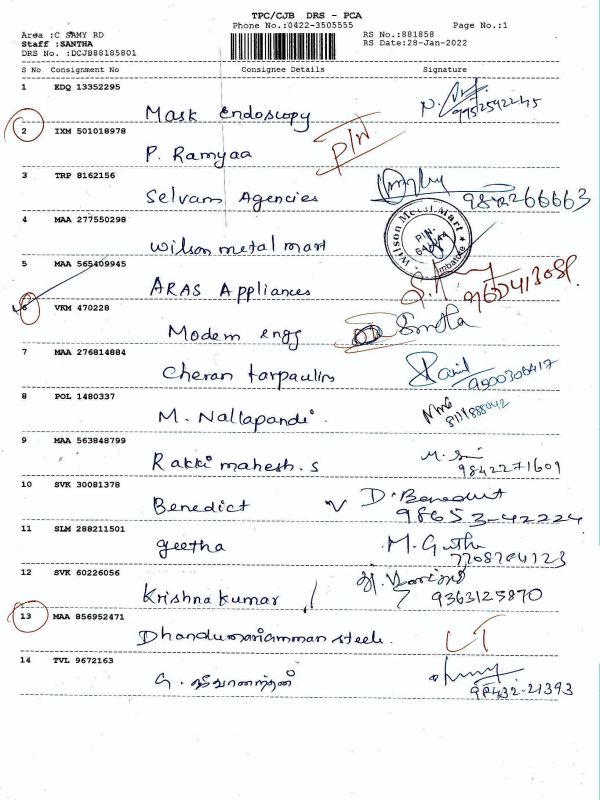 TPC/CJB DRS - PCA
Phone No.:0422-3505555 Page No.:1
Area :C SAMY RD RS No.:881858
Staff :SANTHA RS Date:28-Jan-2022
DRS No. :DCJB88185801
S No Consignment No Consignee Details Signature
1 EDQ 13352295
Mask Endoscopy
2 IXM 501018978
P. Ramyaa PIN
3 TRP 8162156
Selvam Agencies
4 MAA 277550298
Wilson metal mart
Wilson Metal Mart
PIN-
5 MAA 565409945
ARAS Appliances
6 VKM 470228
Modern engg
7 MAA 276814884
Cheran tarpaulins
8 POL 1480337
M. Nallapandi
9 MAA 563848799
Rakki mahesh.s 9842271609
10 SVK 30081378
Benedict D. Benedict
98653-42224
11 SLM 288211501
geetha
7708704123
12 SVK 60226056
Krishna kumar 9363125870
13 MAA 856952471
Dhandumariamman steels.
14 TVL 9672163
98432-21393